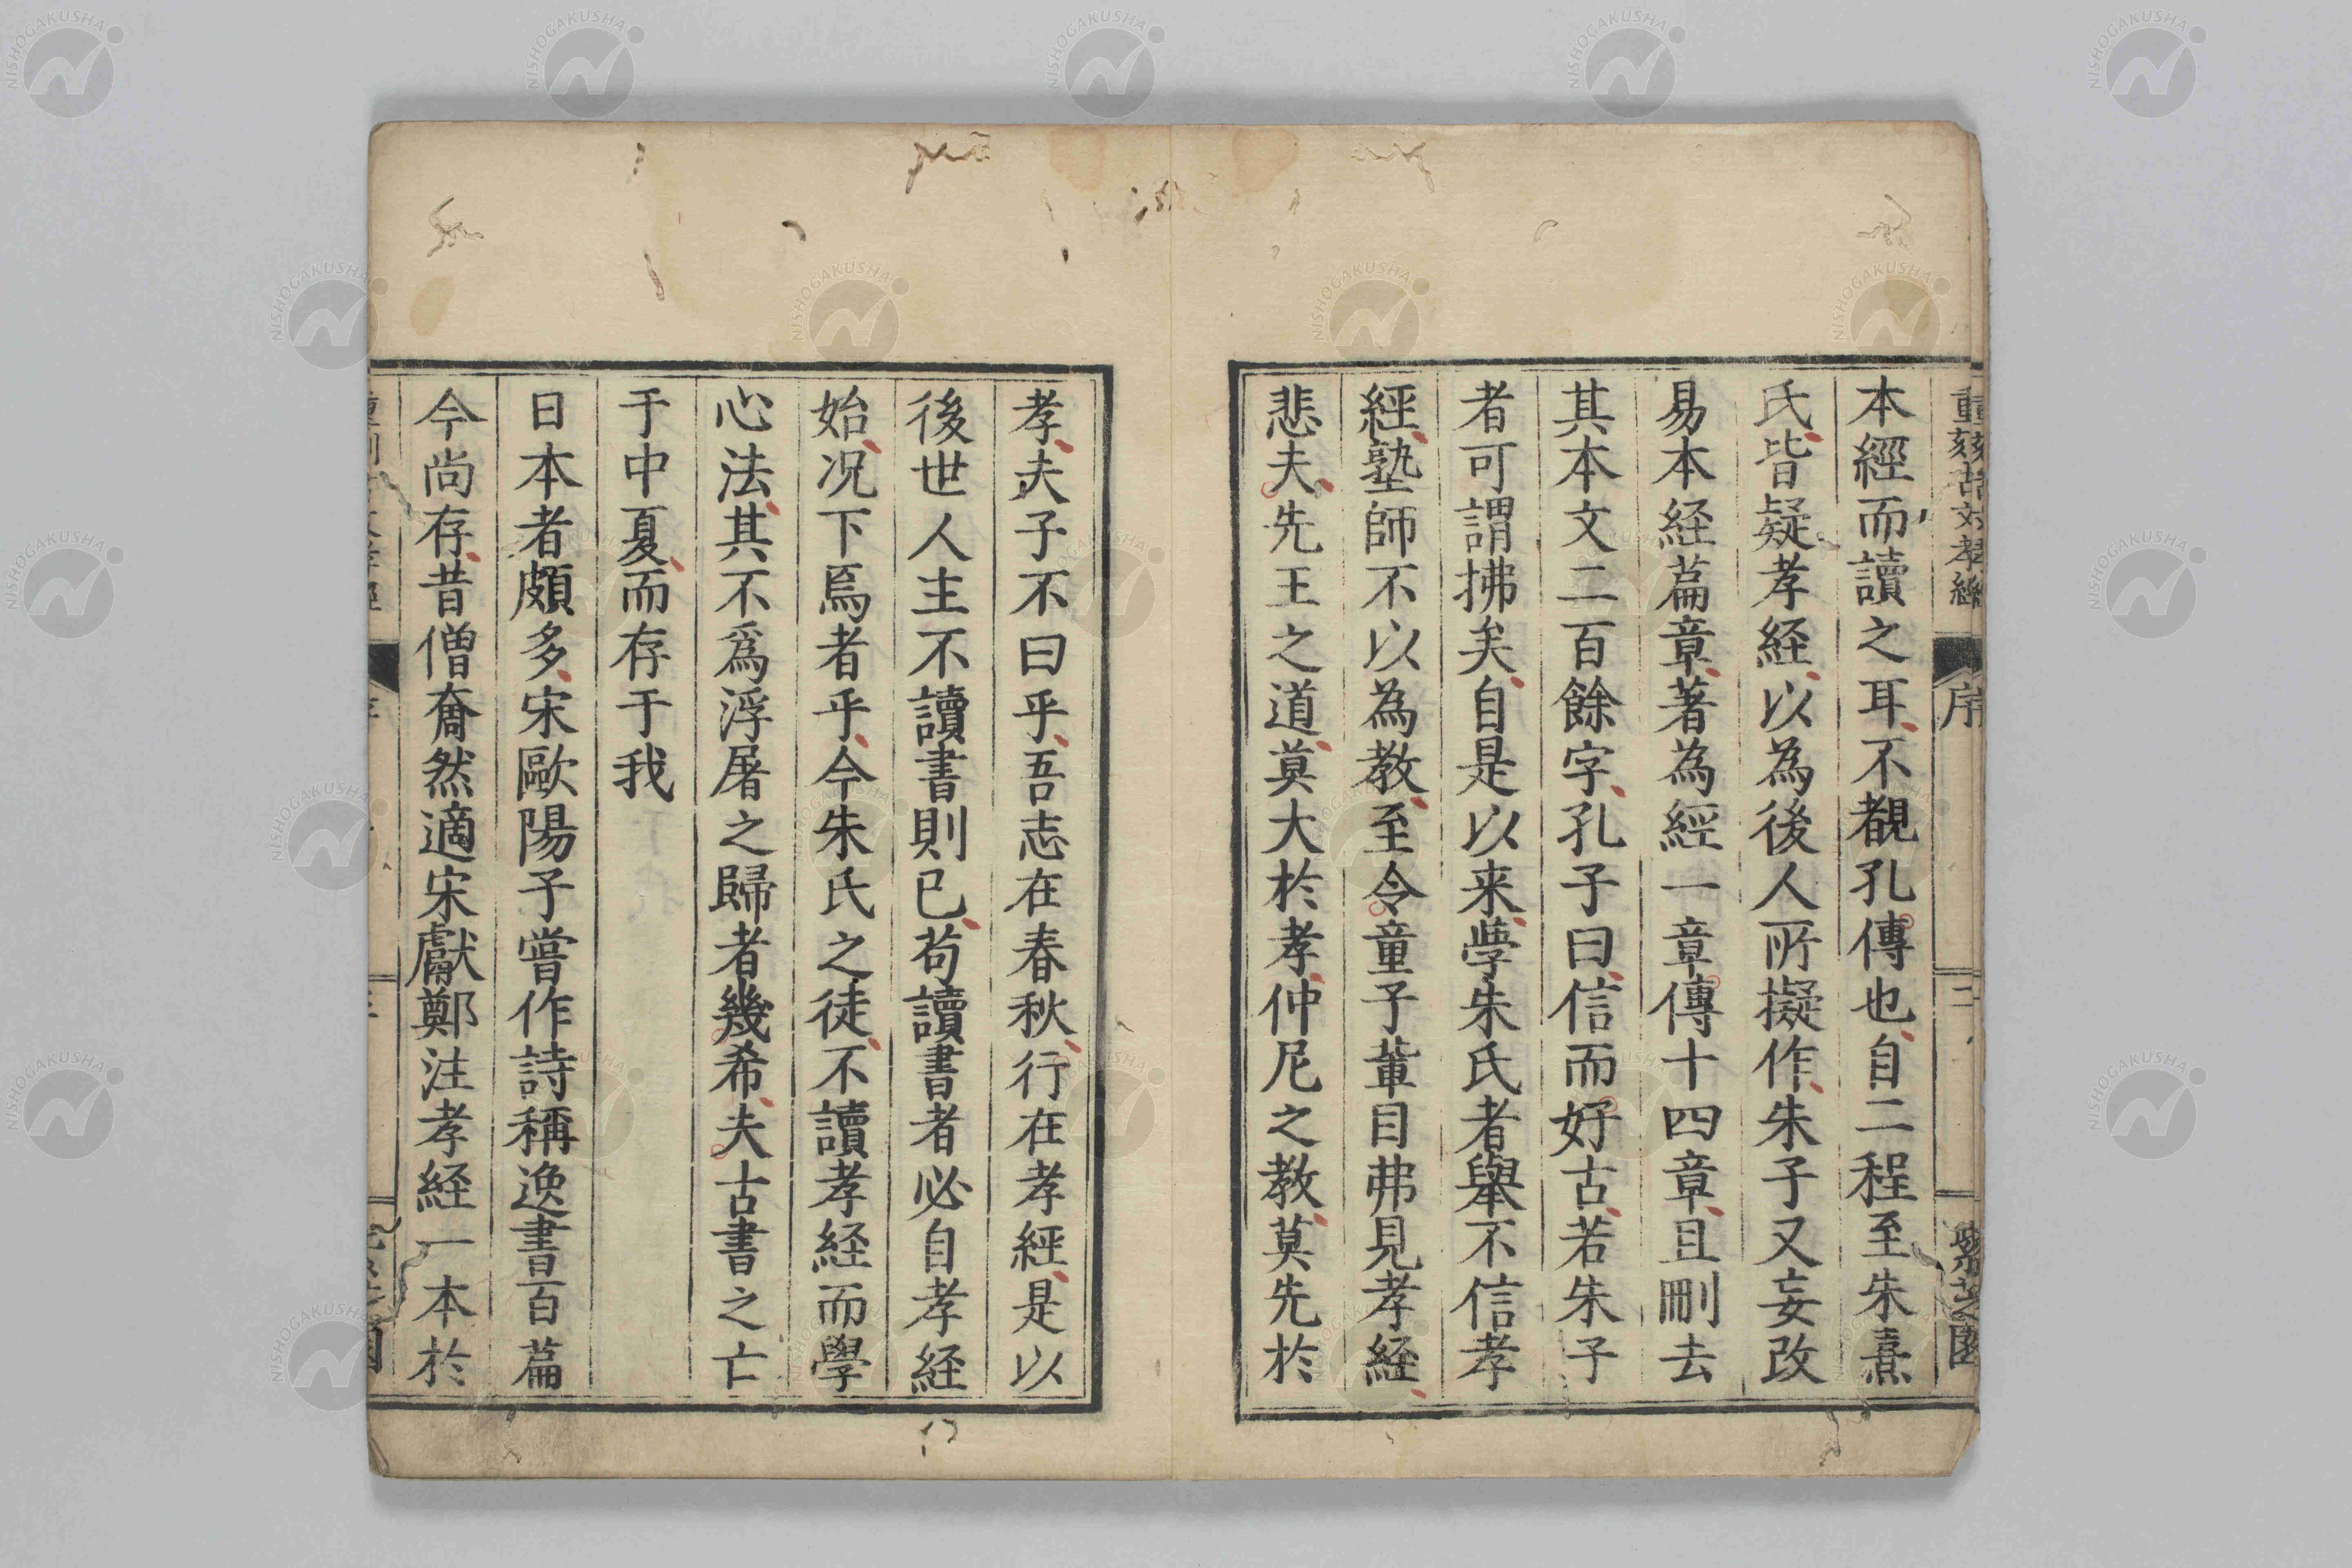 重刻古文孝經
序
二
紫芝園
本經而讀之耳不覩孔傳也自二程至朱熹
氏皆疑孝経以為後人所擬作朱子又妄改
易本経篇章著為經一章傳十四章且刪去
其本文二百餘字孔子曰信而好古若朱子
者可謂拂矣自是以来學朱氏者舉不信孝
經塾師不以為教至令童子輩目弗見孝経
悲夫先王之道莫大於孝仲尼之教莫先於
孝夫子不曰乎吾志在春秋行在孝經是以
後世人主不讀書則已苟讀書者必自孝経
始况下焉者乎今朱氏之徒不讀孝経而學
心法其不爲浮屠之歸者幾希夫古書之亡
于中夏而存于我
日本者頗多宋歐陽子嘗作詩稱逸書百篇
今尚存昔僧奝然適宋獻鄭注孝経一本於